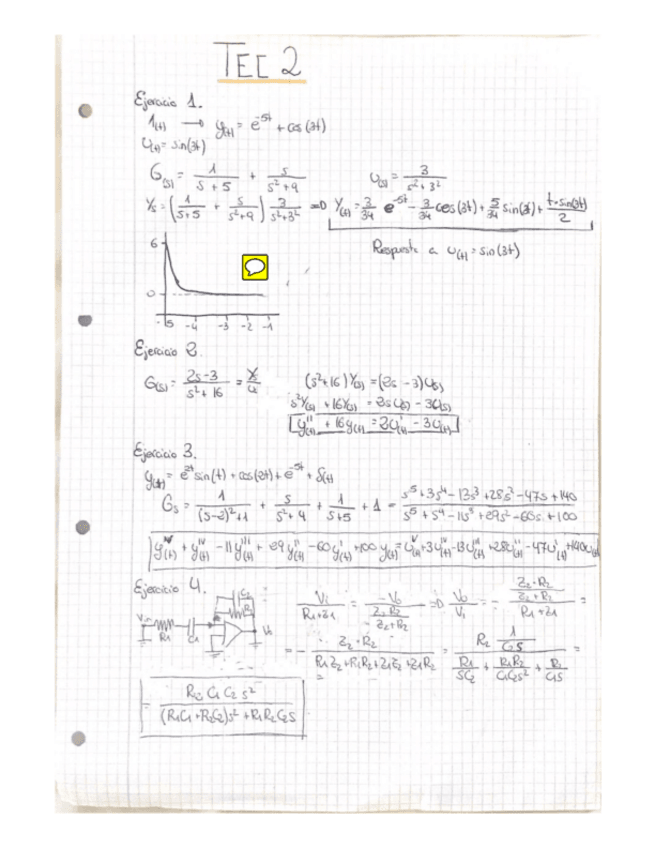 TEC 2
Ejercicio 1.
1(t) → y(t) = e^-5t + cos(3t)
u(t) = sin(3t)
G(s) = 1/(s+5) + s/(s²+9) U(s) = 3/(s²+3²)
Ys = (1/(s+5) + s/(s²+9)) 3/(s²+3²) ⇒ Y(t) = 3/34 e^-5t - 3/34 cos(3t) + 5/34 sin(3t) + t·sin(3t)/2
Respuesta a u(t) = sin(3t)
6
0
-5 -4 -3 -2 -1
Ejercicio 2.
G(s) = (2s-3)/(s²+16) = Ys/Us (s²+16) Y(s) = (2s-3)U(s)
s²Y(s) + 16Y(s) = 2sU(s) - 3U(s)
y''(t) + 16y(t) = 2u'(t) - 3u(t)
Ejercicio 3.
y(t) = e^2t sin(t) + cos(2t) + e^-5t + δ(t)
Gs = 1/((s-2)²+1) + s/(s²+4) + 1/(s+5) + 1 = (s⁵+3s⁴-13s³+28s²-47s+140)/(s⁵+s⁴-11s³+29s²-60s+100)
y^V(t) + y^IV(t) - 11y'''(t) + 29y''(t) - 60y'(t) + 100y(t) = u^V(t) + 3u^IV(t) - 13u'''(t) + 28u''(t) - 47u'(t) + 140u(t)
Ejercicio 4.
C2
R2
Vi
R1 C1 Vo
Vi/(R1+Z1) = -Vo/(Z2·R2/(Z2+R2)) ⇒ Vo/Vi = - (Z2·R2/(Z2+R2))/(R1+Z1) =
= - Z2·R2/(R1Z2+R1R2+Z1Z2+Z1R2) =